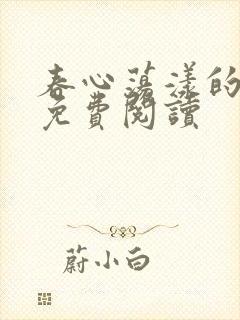 春心蕩漾的
免費閱讀
蔚小白